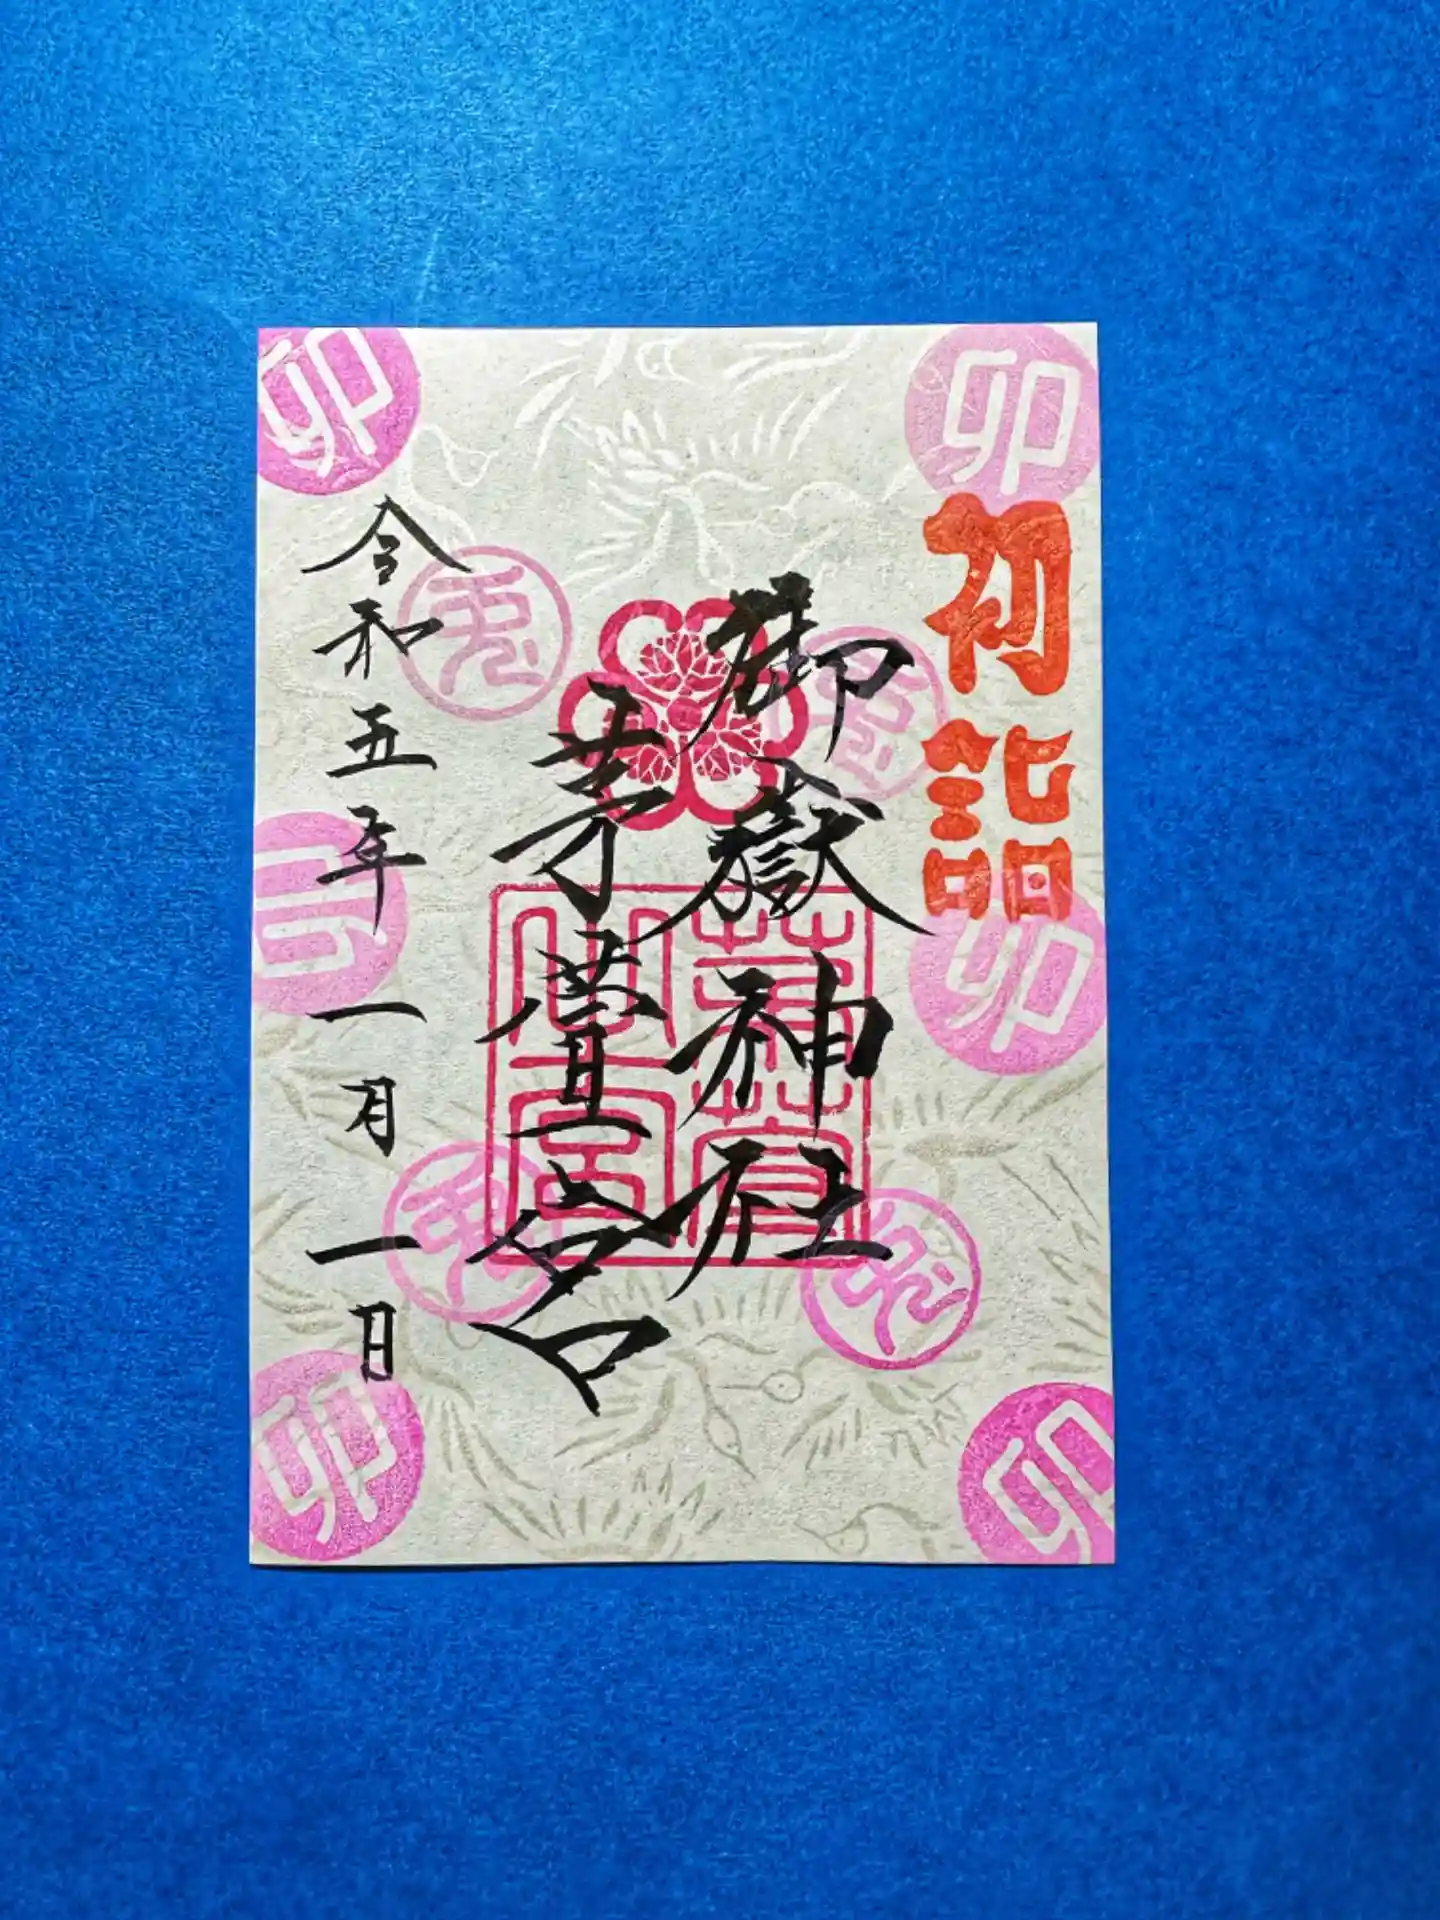 初詣
御嶽神社
茅萱宮
令和五年一月一日
卯
卯
卯
卯
卯
卯
兎
兎
兎
兎